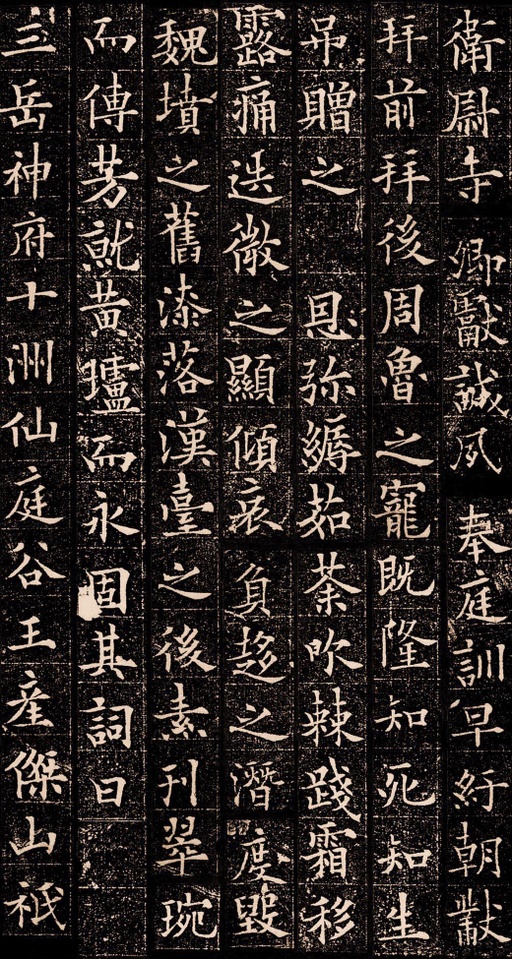 衛尉寺卿獻誠夙奉庭訓早紆朝獻
拜前拜後周魯之寵既隆知死知生
吊贈之恩弥縟茹荼吹棘踐霜移
露痛迭微之顯傾哀負趍之潛度毀
魏墳之舊漆落漢臺之後素刊翠琬
而傳芳就黃壚而永固其詞曰
三岳神府十洲仙庭谷王產傑山祇